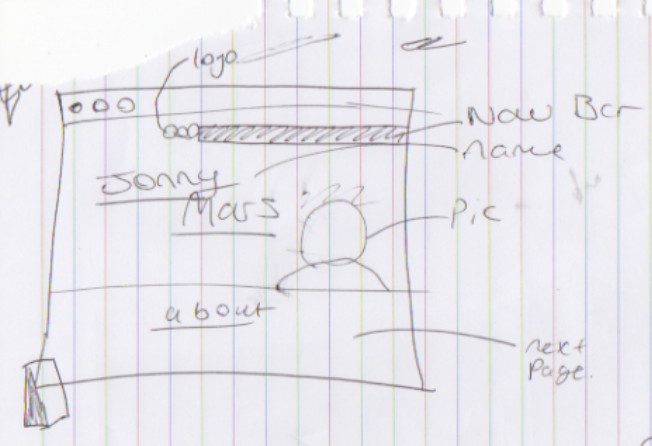 logo
Nav Bar
name
Jonny
Mars
Pic
about
next
Page.